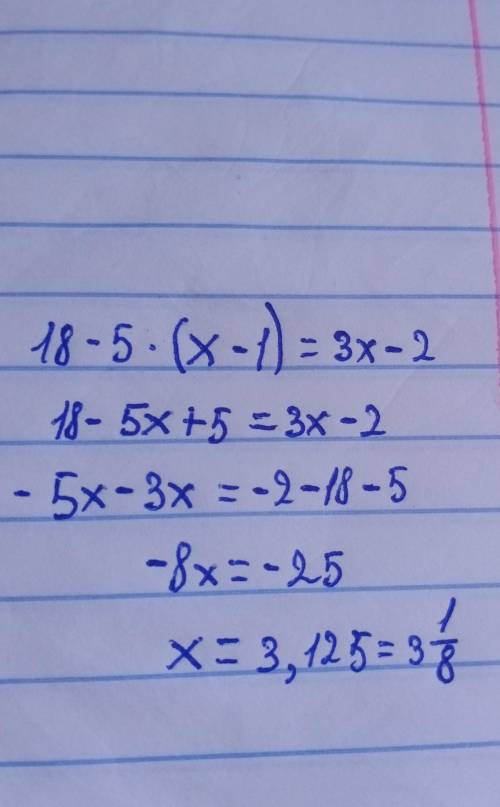 18 - 5 · (x - 1) = 3x - 2
18 - 5x + 5 = 3x - 2
- 5x - 3x = -2 - 18 - 5
-8x = -25
x = 3,125 = 3 1/8